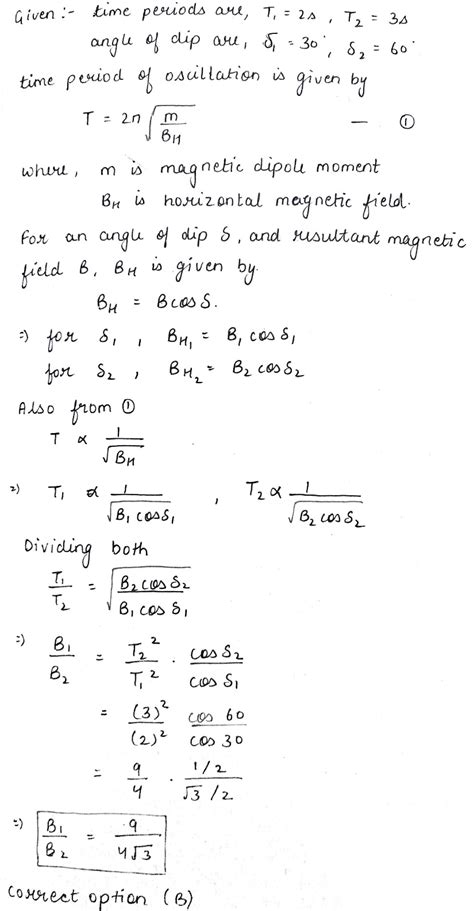 Given :- time periods are, T₁ = 2s , T₂ = 3s
angle of dip are, δ₁ = 30°, δ₂ = 60°
time period of oscillation is given by
T = 2π √(m/B_H) — ①
where, m is magnetic dipole moment
B_H is horizontal magnetic field.
For an angle of dip δ, and resultant magnetic
field B, B_H is given by.
B_H = B cos δ.
=) for δ₁ , B_H₁ = B₁ cos δ₁
for δ₂ , B_H₂ = B₂ cos δ₂
Also from ①
T ∝ 1/√B_H
=) T₁ ∝ 1/√(B₁ cos δ₁) , T₂ ∝ 1/√(B₂ cos δ₂)
Dividing both
T₁/T₂ = √(B₂ cos δ₂ / B₁ cos δ₁)
=) B₁/B₂ = T₂²/T₁² · cos δ₂/cos δ₁
= (3)²/(2)² cos 60/cos 30
= 9/4 · 1/2 / √3/2
=) B₁/B₂ = 9/4√3
correct option (B)